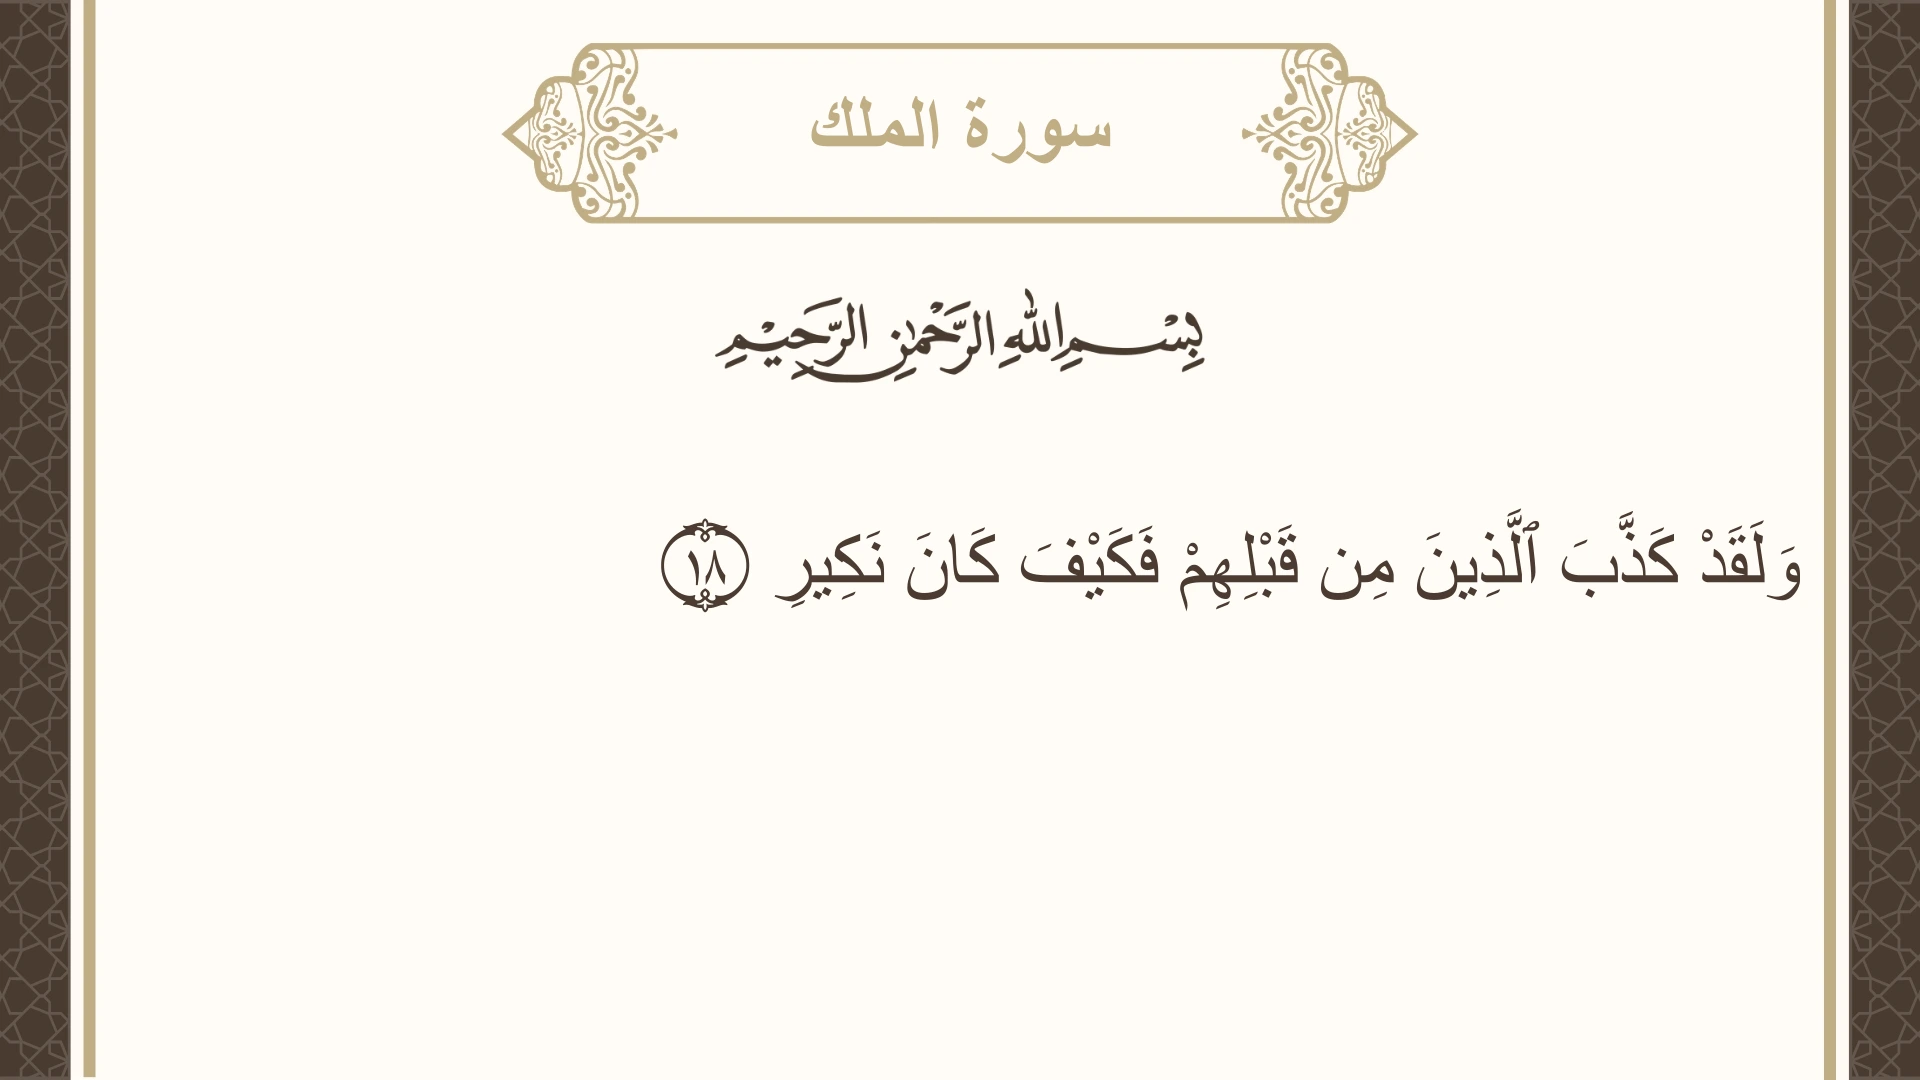 سورة الملك
بِسْمِ اللهِ الرَّحْمٰنِ الرَّحِيْمِ
وَلَقَدْ كَذَّبَ ٱلَّذِينَ مِن قَبْلِهِمْ فَكَيْفَ كَانَ نَكِيرِ ١٨